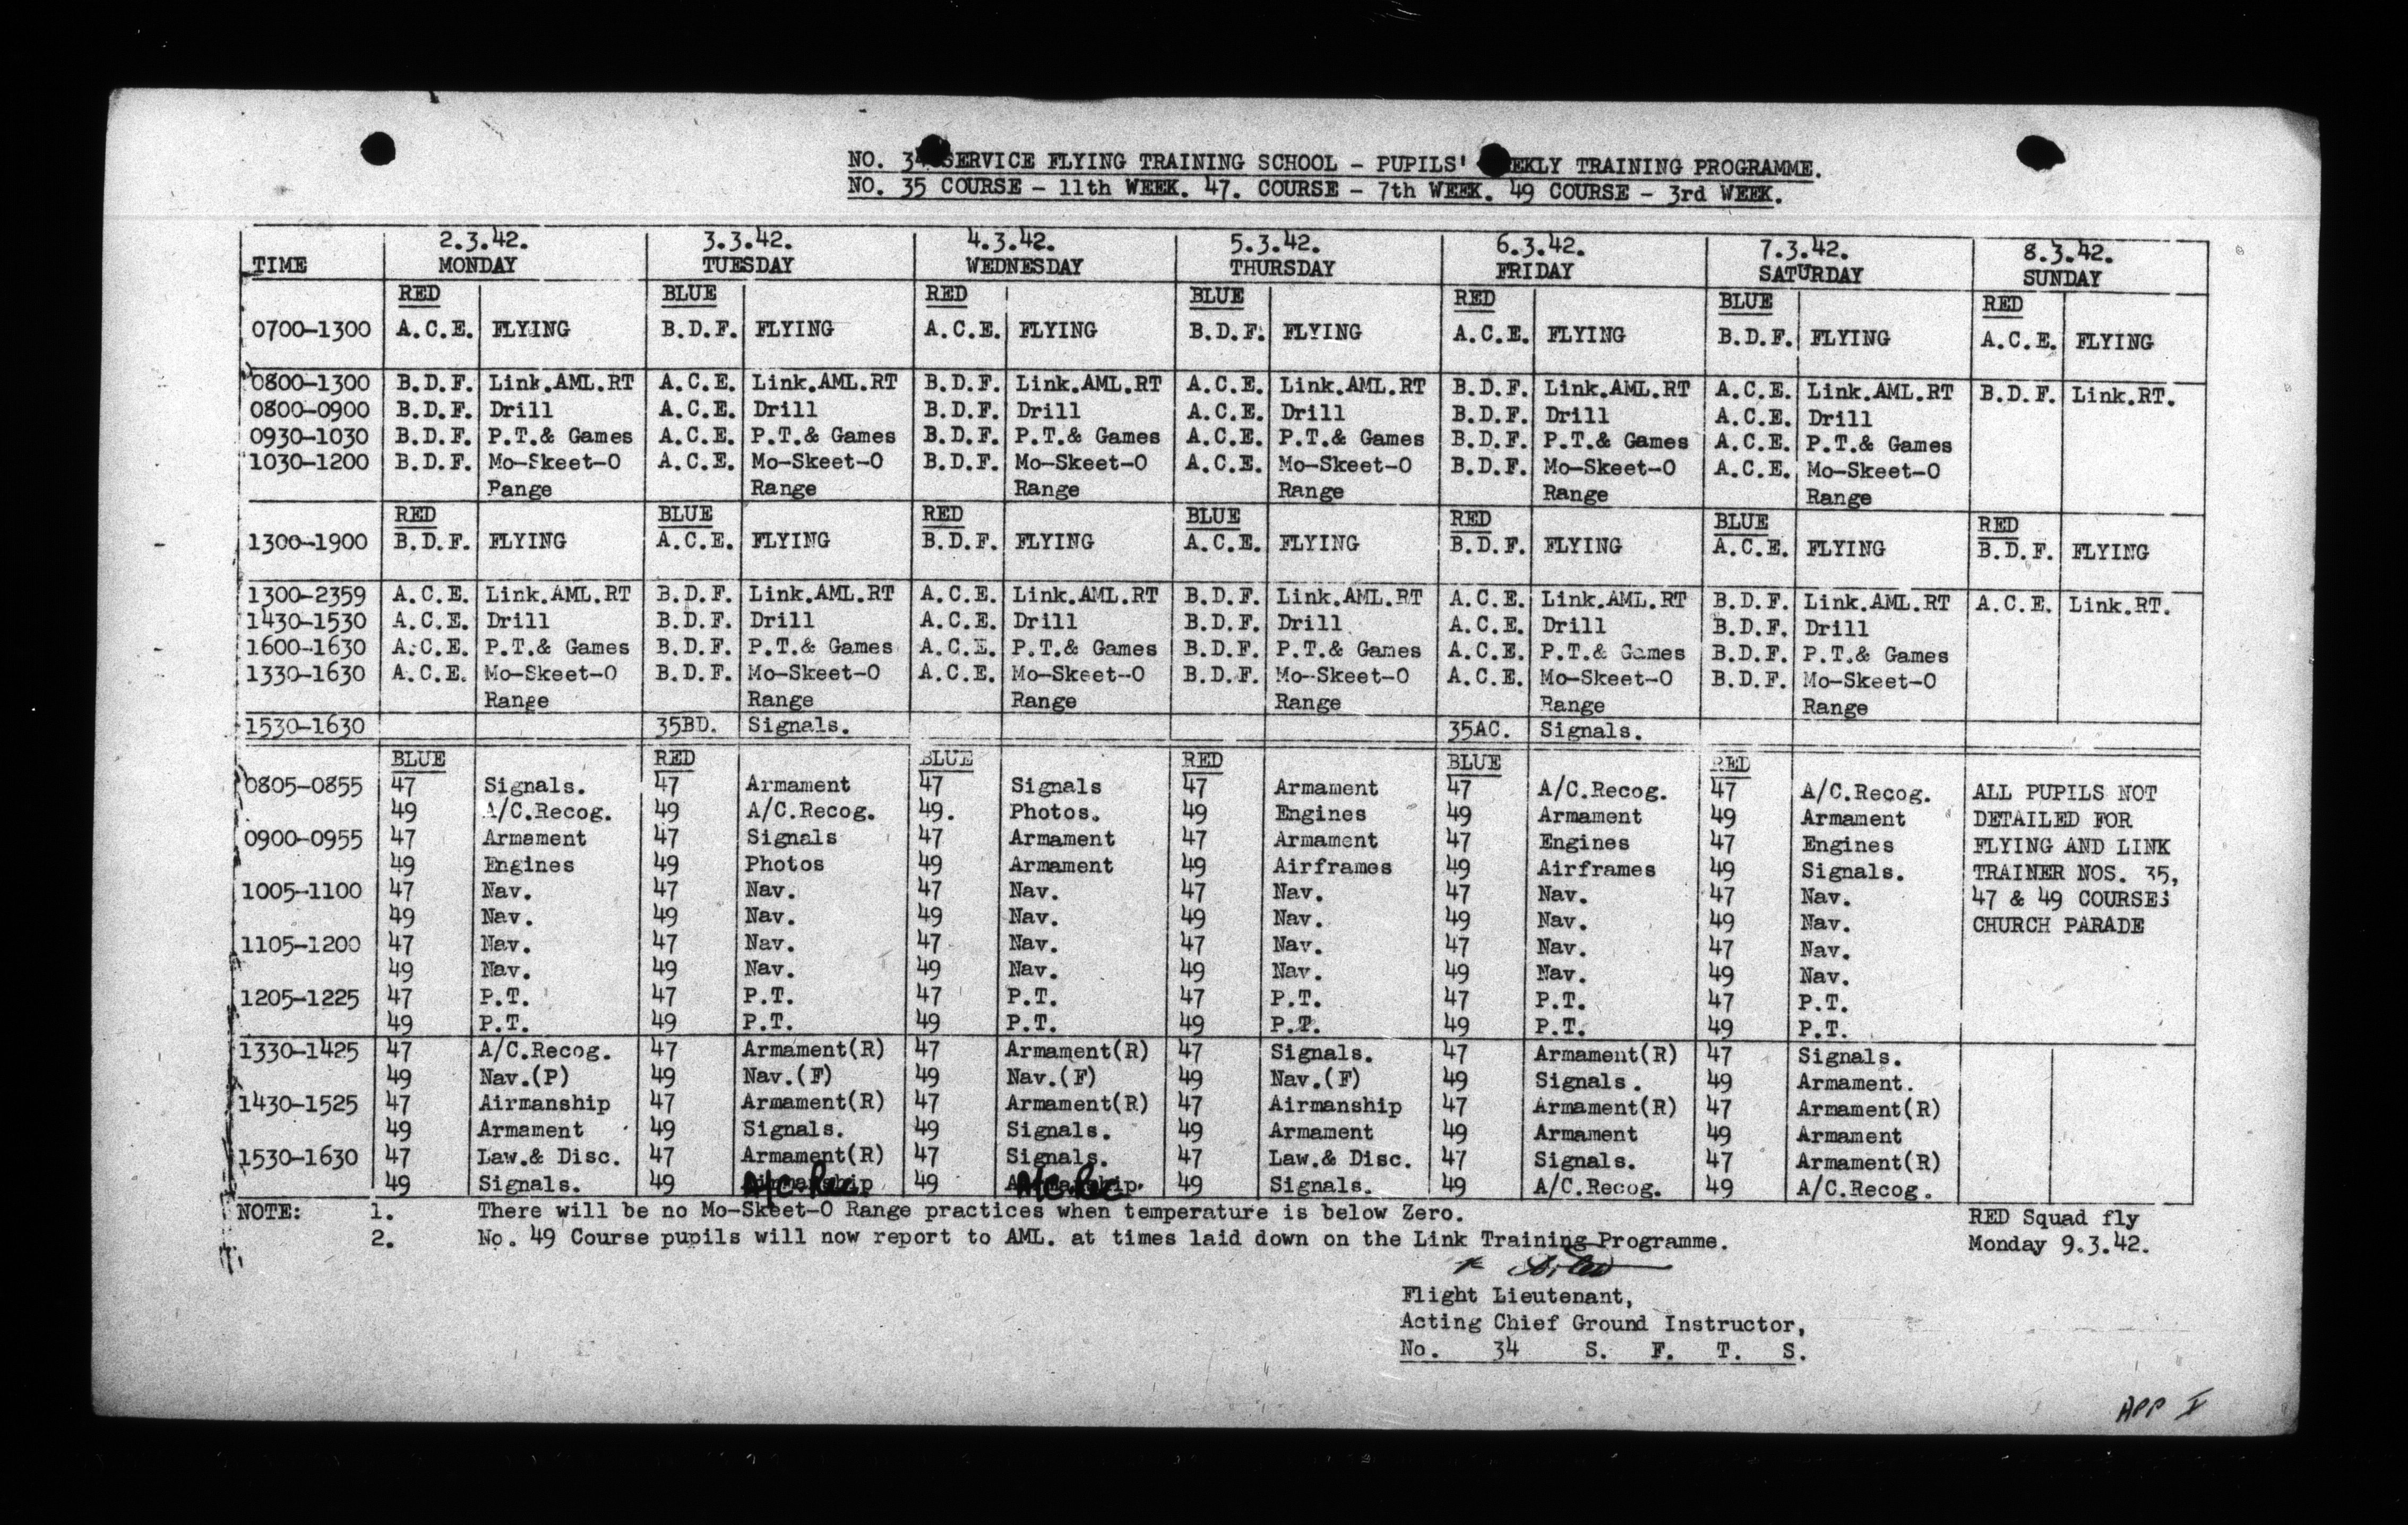 NO. 34 SERVICE FLYING TRAINING SCHOOL - PUPILS' EKLY TRAINING PROGRAMME.
NO. 35 COURSE - 11th WEEK. 47. COURSE - 7th WEEK. 49 COURSE - 3rd WEEK.
2.3.42. 3.3.42. 4.3.42. 5.3.42. 6.3.42. 7.3.42. 8.3.42.
TIME MONDAY TUESDAY WEDNESDAY THURSDAY FRIDAY SATURDAY SUNDAY
RED BLUE RED BLUE RED BLUE RED
0700-1300 A.C.E. FLYING B.D.F. FLYING A.C.E. FLYING B.D.F. FLYING A.C.E. FLYING B.D.F. FLYING A.C.E. FLYING
0800-1300 B.D.F. Link.AML.RT A.C.E. Link.AML.RT B.D.F. Link.AML.RT A.C.E. Link.AML.RT B.D.F. Link.AML.RT A.C.E. Link.AML.RT B.D.F. Link.RT.
0800-0900 B.D.F. Drill A.C.E. Drill B.D.F. Drill A.C.E. Drill B.D.F. Drill A.C.E. Drill
0930-1030 B.D.F. P.T.& Games A.C.E. P.T.& Games B.D.F. P.T.& Games A.C.E. P.T.& Games B.D.F. P.T.& Games A.C.E. P.T.& Games
1030-1200 B.D.F. Mo-Skeet-O A.C.E. Mo-Skeet-O B.D.F. Mo-Skeet-O A.C.E. Mo-Skeet-O B.D.F. Mo-Skeet-O A.C.E. Mo-Skeet-O
Range Range Range Range Range Range
RED BLUE RED BLUE RED BLUE RED
1300-1900 B.D.F. FLYING A.C.E. FLYING B.D.F. FLYING A.C.E. FLYING B.D.F. FLYING A.C.E. FLYING B.D.F. FLYING
1300-2359 A.C.E. Link.AML.RT B.D.F. Link.AML.RT A.C.E. Link.AML.RT B.D.F. Link.AML.RT A.C.E. Link.AML.RT B.D.F. Link.AML.RT A.C.E. Link.RT.
1430-1530 A.C.E. Drill B.D.F. Drill A.C.E. Drill B.D.F. Drill A.C.E. Drill B.D.F. Drill
1600-1630 A.C.E. P.T.& Games B.D.F. P.T.& Games A.C.E. P.T.& Games B.D.F. P.T.& Games A.C.E. P.T.& Games B.D.F. P.T.& Games
1330-1630 A.C.E. Mo-Skeet-O B.D.F. Mo-Skeet-O A.C.E. Mo-Skeet-O B.D.F. Mo-Skeet-O A.C.E. Mo-Skeet-O B.D.F. Mo-Skeet-O
Range Range Range Range Range Range
1530-1630 35BD. Signals. 35AC. Signals.
BLUE RED BLUE RED BLUE RED
0805-0855 47 Signals. 47 Armament 47 Signals 47 Armament 47 A/C.Recog. 47 A/C.Recog. ALL PUPILS NOT
49 A/C.Recog. 49 A/C.Recog. 49. Photos. 49 Engines 49 Armament 49 Armament DETAILED FOR
0900-0955 47 Armament 47 Signals 47 Armament 47 Armament 47 Engines 47 Engines FLYING AND LINK
49 Engines 49 Photos 49 Armament 49 Airframes 49 Airframes 49 Signals. TRAINER NOS. 35,
1005-1100 47 Nav. 47 Nav. 47 Nav. 47 Nav. 47 Nav. 47 Nav. 47 & 49 COURSES
49 Nav. 49 Nav. 49 Nav. 49 Nav. 49 Nav. 49 Nav. CHURCH PARADE
1105-1200 47 Nav. 47 Nav. 47 Nav. 47 Nav. 47 Nav. 47 Nav.
49 Nav. 49 Nav. 49 Nav. 49 Nav. 49 Nav. 49 Nav.
1205-1225 47 P.T. 47 P.T. 47 P.T. 47 P.T. 47 P.T. 47 P.T.
49 P.T. 49 P.T. 49 P.T. 49 P.T. 49 P.T. 49 P.T.
1330-1425 47 A/C.Recog. 47 Armament(R) 47 Armament(R) 47 Signals. 47 Armament(R) 47 Signals.
49 Nav.(P) 49 Nav.(F) 49 Nav.(F) 49 Nav.(F) 49 Signals. 49 Armament.
1430-1525 47 Airmanship 47 Armament(R) 47 Armament(R) 47 Airmanship 47 Armament(R) 47 Armament(R)
49 Armament 49 Signals. 49 Signals. 49 Armament 49 Armament 49 Armament
1530-1630 47 Law.& Disc. 47 Armament(R) 47 Signals. 47 Law.& Disc. 47 Signals. 47 Armament(R)
49 Signals. 49 A/C Rec 49 A/C Rec 49 Signals. 49 A/C.Recog. 49 A/C.Recog.
NOTE: 1. There will be no Mo-Skeet-O Range practices when temperature is below Zero. RED Squad fly
2. No. 49 Course pupils will now report to AML. at times laid down on the Link Training Programme. Monday 9.3.42.
Flight Lieutenant,
Acting Chief Ground Instructor,
No. 34 S. F. T. S.
APP I